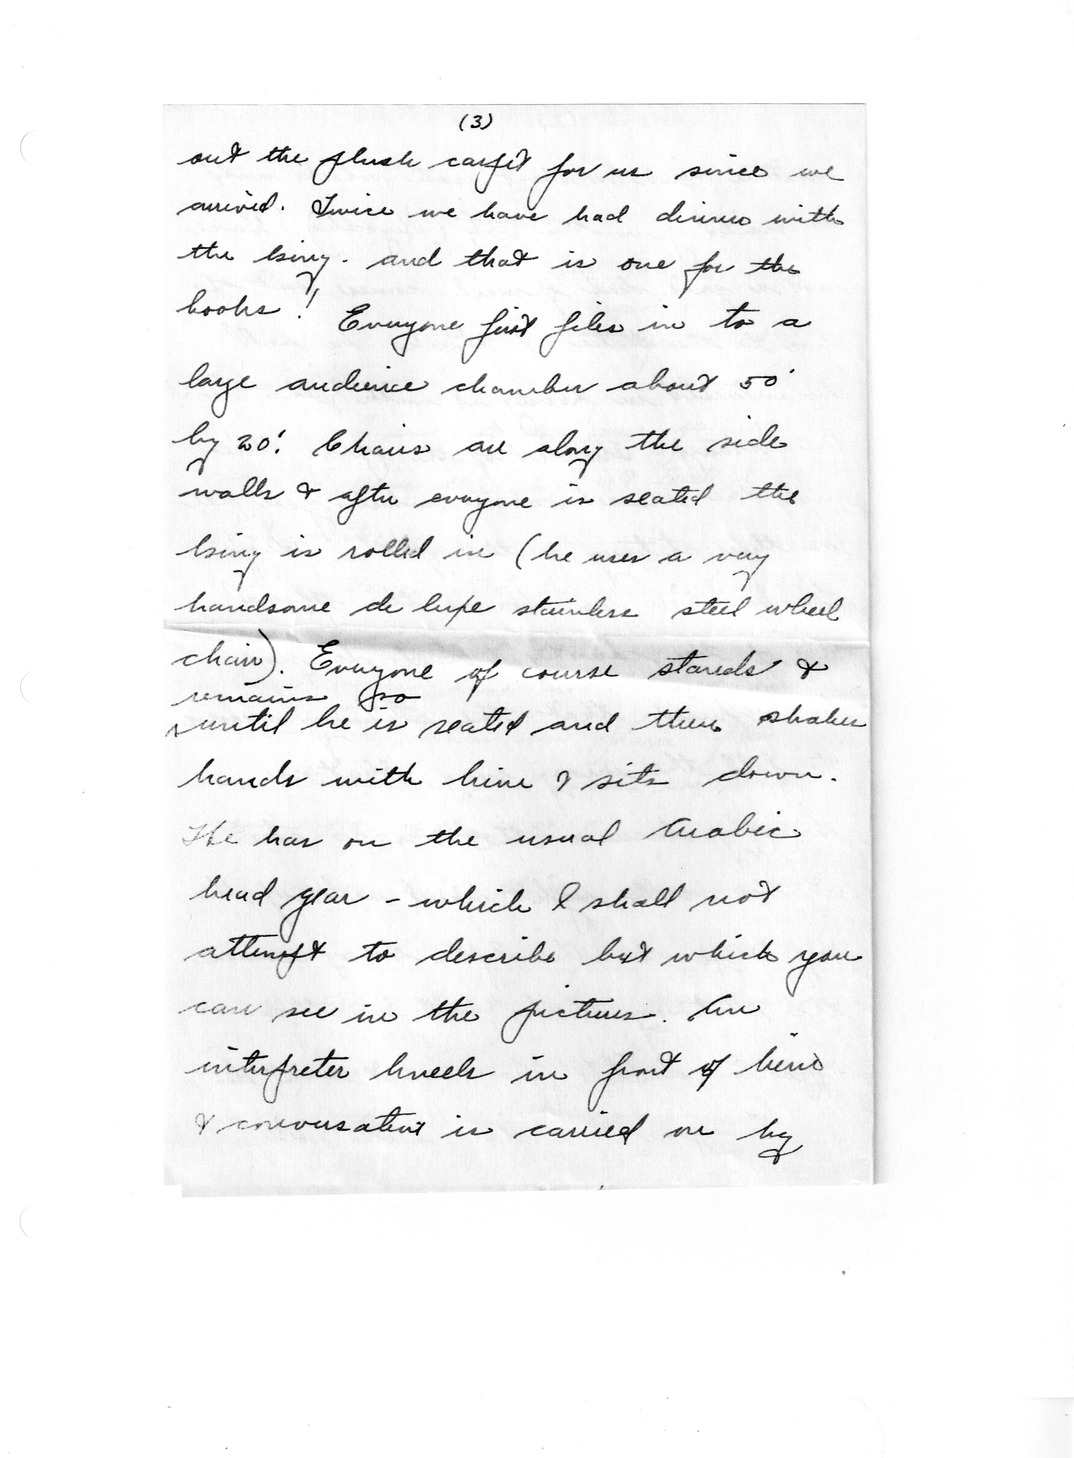 (3)
out the plush carpet for us since we
arrived. Twice we have had dinner with
the king. and that is one for the
books! Everyone first files in to a
large audience chamber about 50'
by 20'. Chairs are along the side
walls & after everyone is seated the
king is rolled in (he uses a very
handsome de luxe stainless steel wheel
chair). Everyone of course stands &
remains so
until he is seated and then shakes
hands with him & sits down.
He has on the usual Arabic
head gear - which I shall not
attempt to describe but which you
can see in the pictures. An
interpreter kneels in front of him
& conversation is carried on by